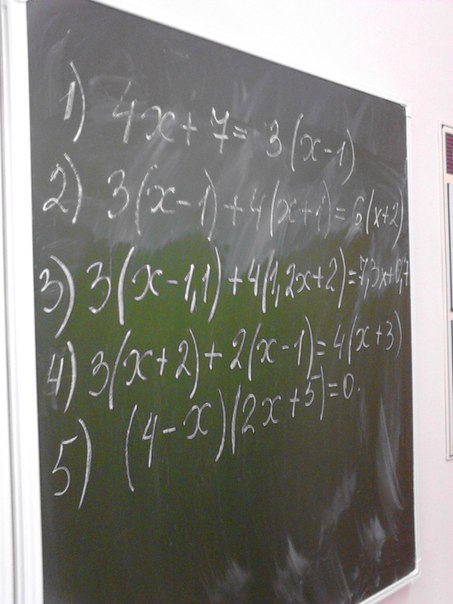 1) 4x+7=3(x-1)
2) 3(x-1)+4(x+1)=6(x+2)
3) 3(x-1,1)+4(1,2x+2)=7,3x+0,7
4) 3(x+2)+2(x-1)=4(x+3)
5) (4-x)(2x+5)=0.